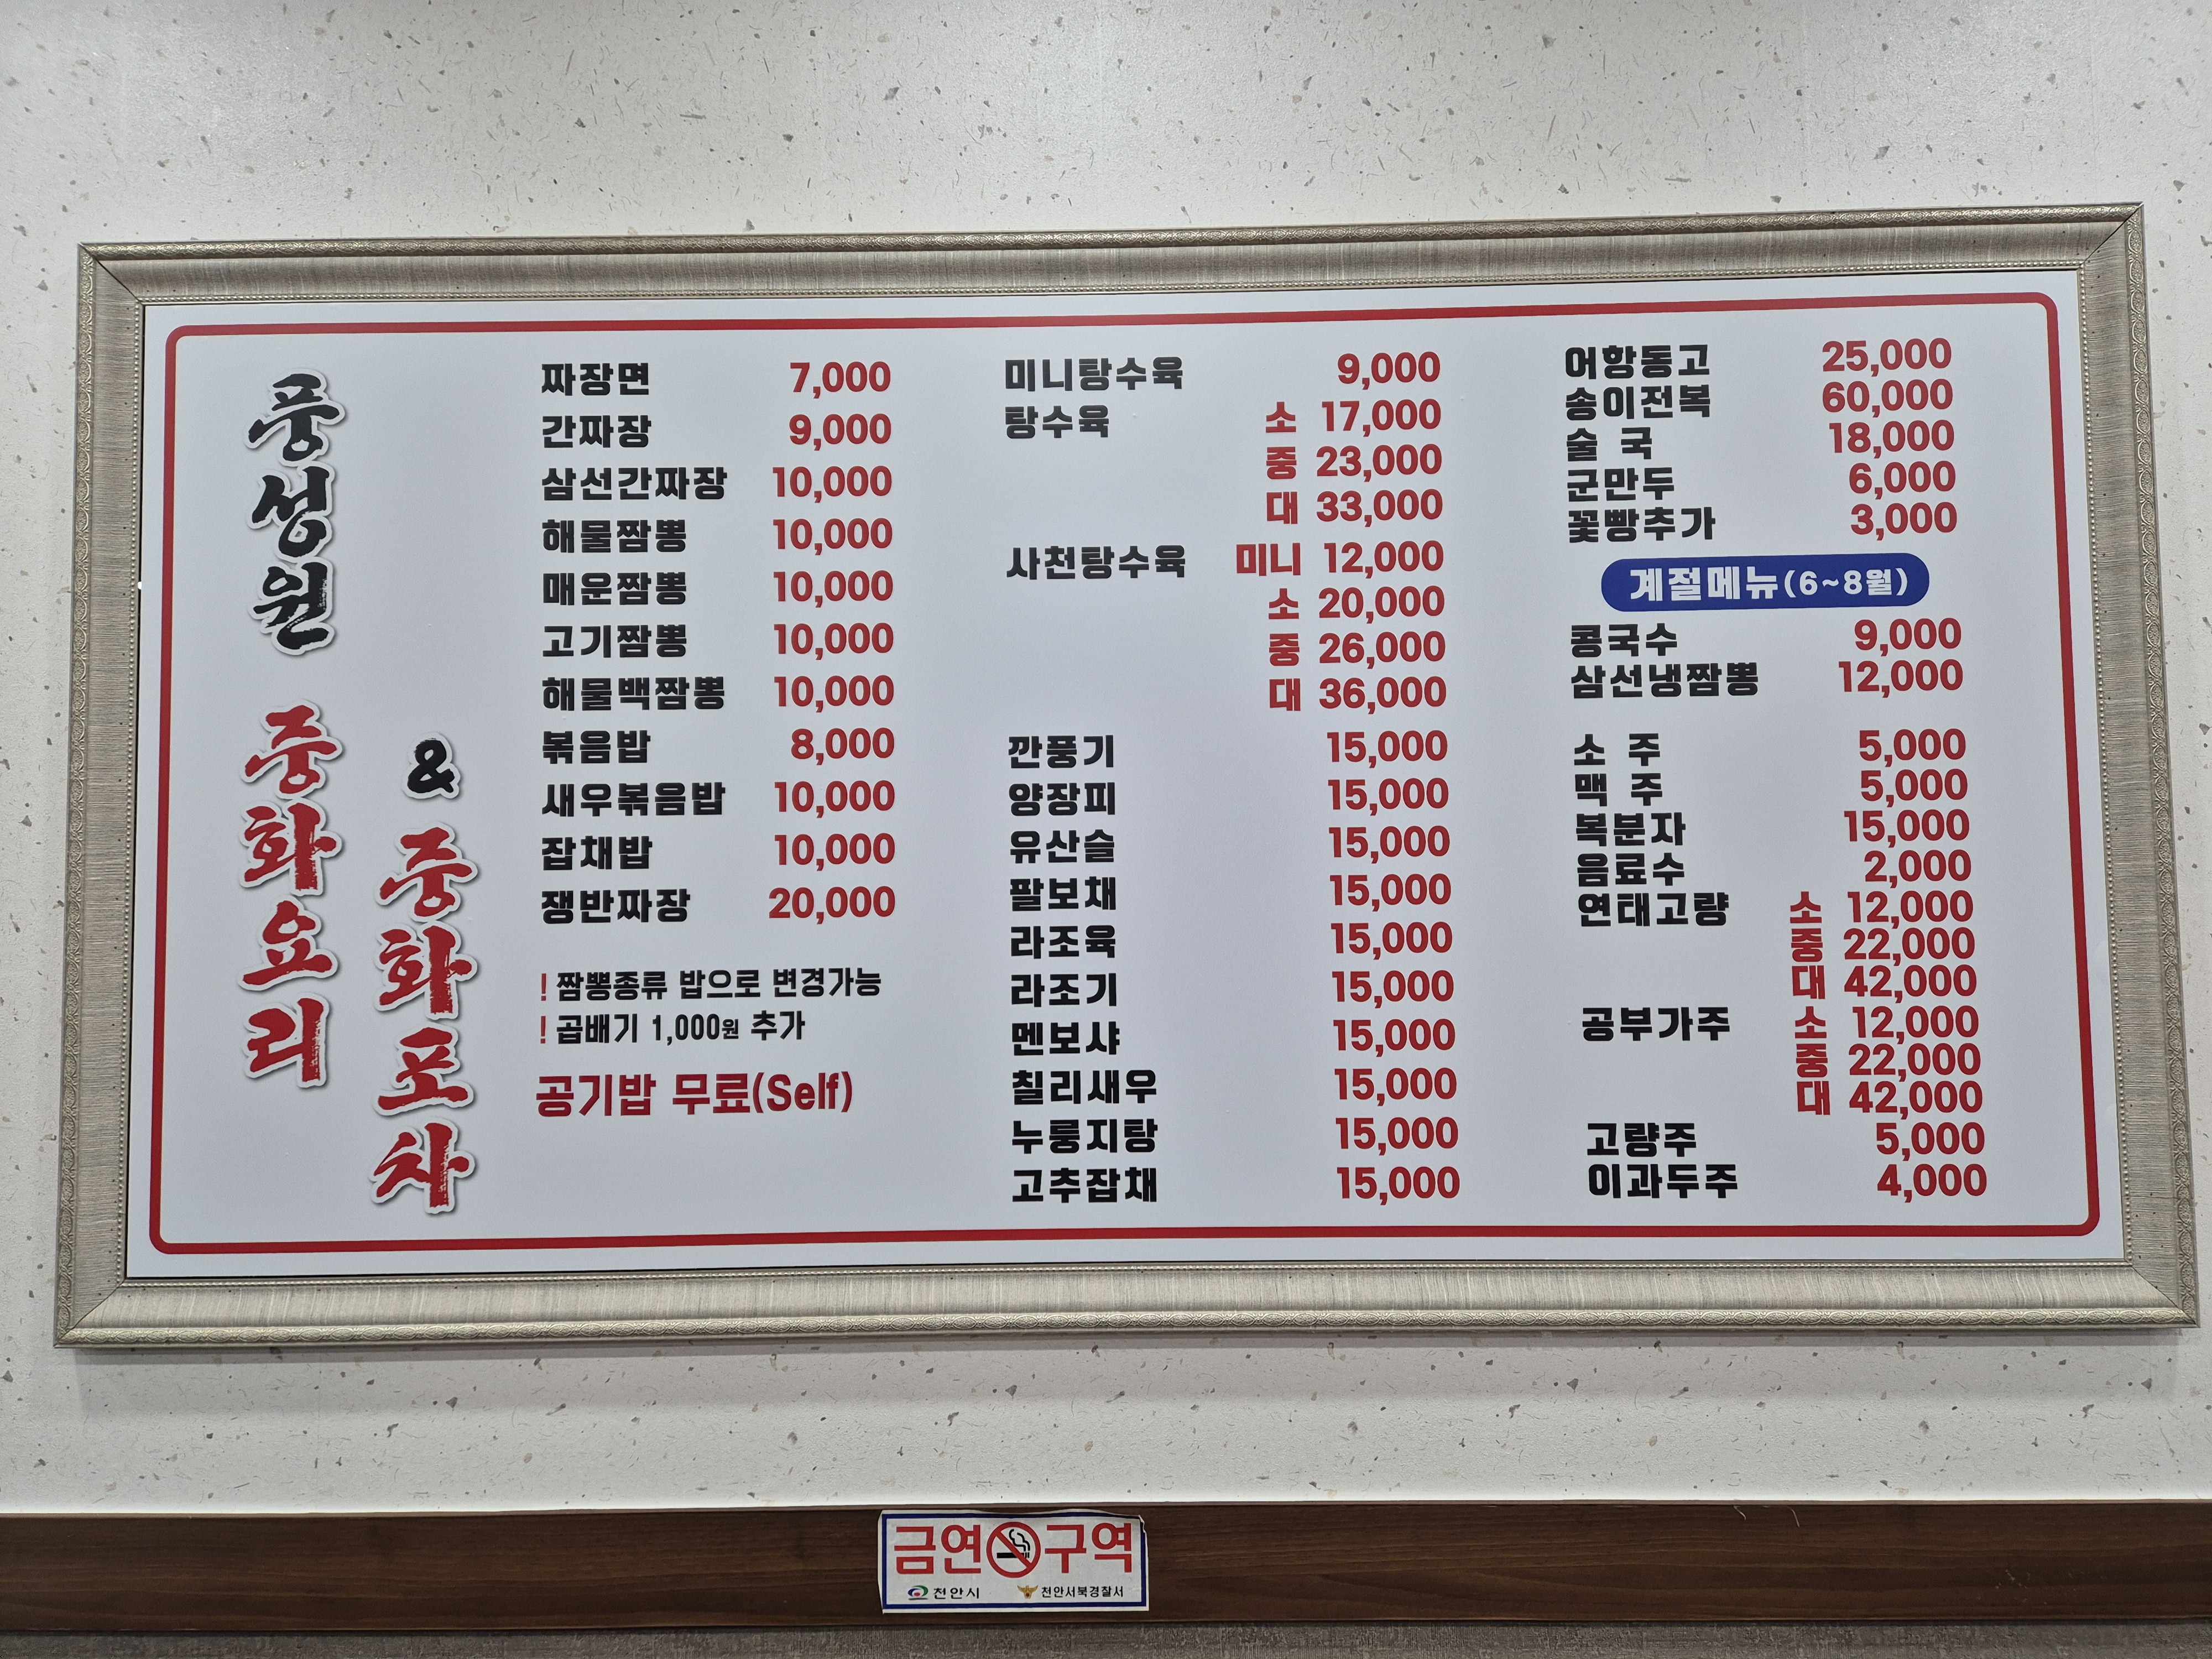 풍성원
중화요리
& 중화포차
짜장면 7,000
간짜장 9,000
삼선간짜장 10,000
해물짬뽕 10,000
매운짬뽕 10,000
고기짬뽕 10,000
해물백짬뽕 10,000
볶음밥 8,000
새우볶음밥 10,000
잡채밥 10,000
쟁반짜장 20,000
! 짬뽕종류 밥으로 변경가능
! 곱배기 1,000원 추가
공기밥 무료(Self)
미니탕수육 9,000
탕수육 소 17,000
중 23,000
대 33,000
사천탕수육 미니 12,000
소 20,000
중 26,000
대 36,000
깐풍기 15,000
양장피 15,000
유산슬 15,000
팔보채 15,000
라조육 15,000
라조기 15,000
멘보샤 15,000
칠리새우 15,000
누룽지탕 15,000
고추잡채 15,000
어항동고 25,000
송이전복 60,000
술 국 18,000
군만두 6,000
꽃빵추가 3,000
계절메뉴(6~8월)
콩국수 9,000
삼선냉짬뽕 12,000
소 주 5,000
맥 주 5,000
복분자 15,000
음료수 2,000
연태고량 소 12,000
중 22,000
대 42,000
공부가주 소 12,000
중 22,000
대 42,000
고량주 5,000
이과두주 4,000
금연구역
천안시 천안서북경찰서